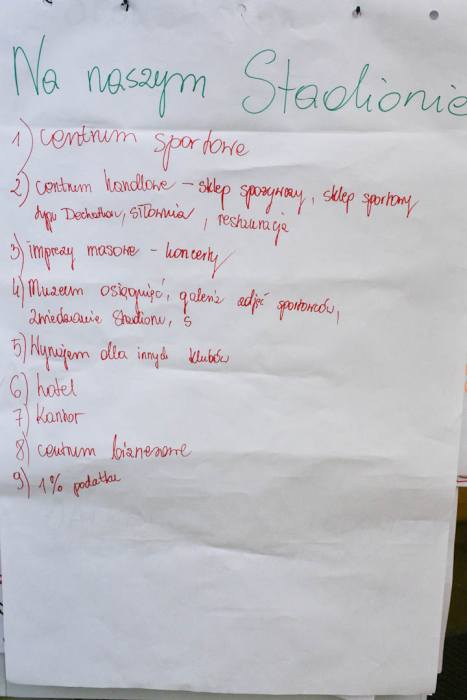 Na naszym Stadionie
1) centrum sportowe
2) centrum handlowe - sklep spożywczy, sklep sportowy
typu Dechatlon, siłownia, restauracja
3) imprezy masowe - koncerty
4) Muzeum osiągnięć, galeria zdjęć sportowców,
zwiedzanie Stadionu, s
5) Wynajem dla innych klubów
6) hotel
7) Kantor
8) centrum biznesowe
9) 1% podatku